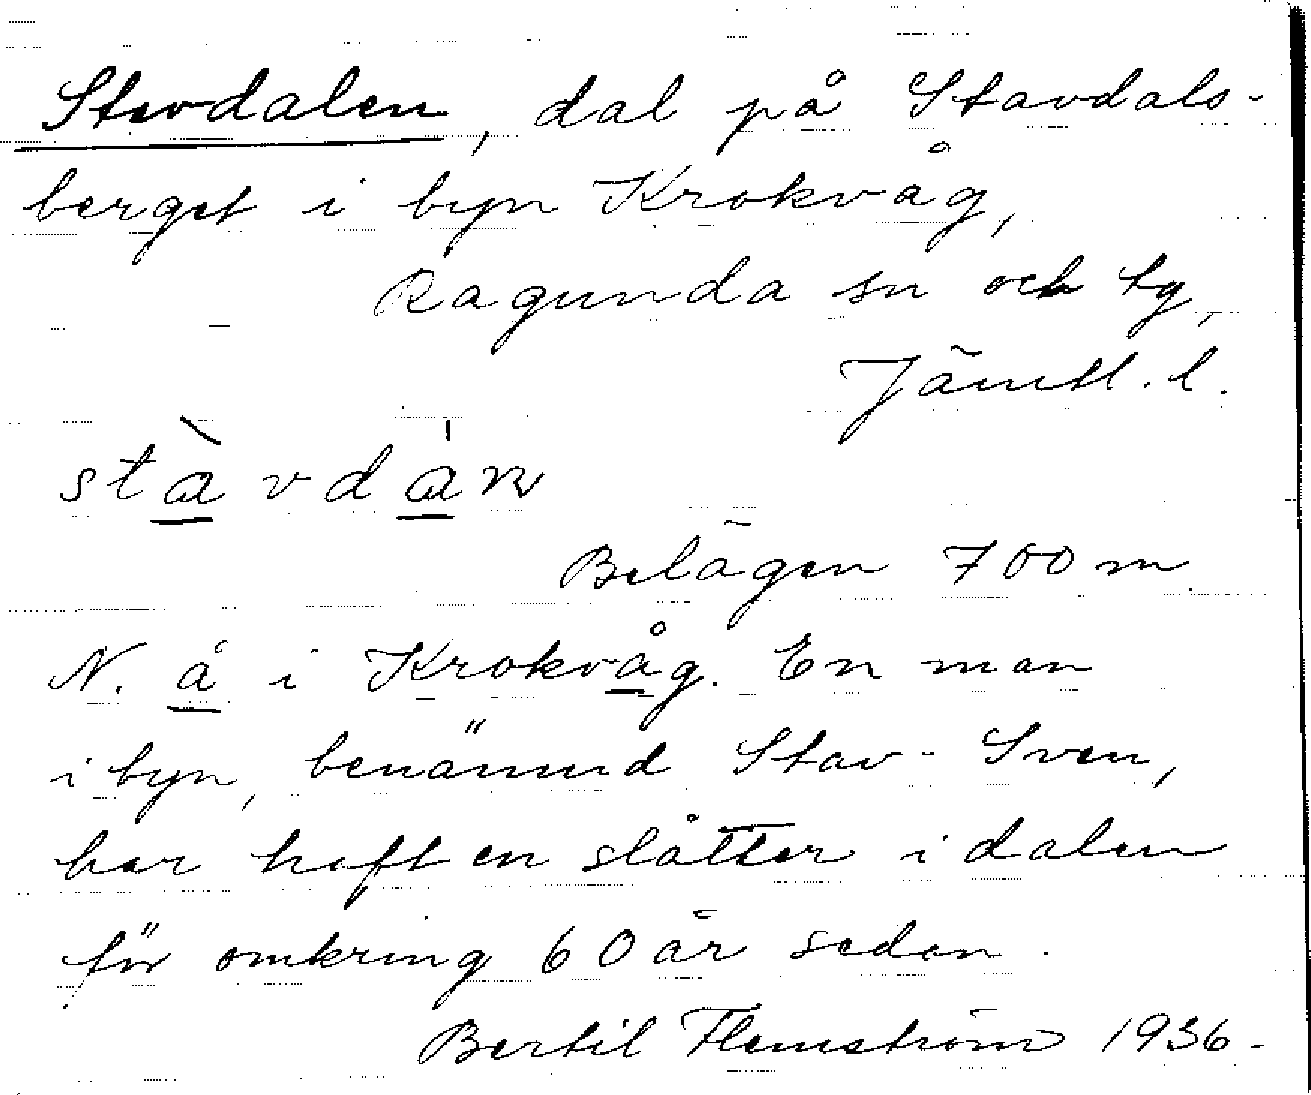 Stavdalen, dal på Stavdals-
berget i byn Krokvåg,
Ragunda sn och tg,
Jämtl. l.
stàvdáṉ
Belägen 700 m
N. å i Krokvåg. En man
i byn, benämnd Stav-Sven,
har haft en slåtter i dalen
för omkring 60 år sedan.
Bertil Flemström 1936.